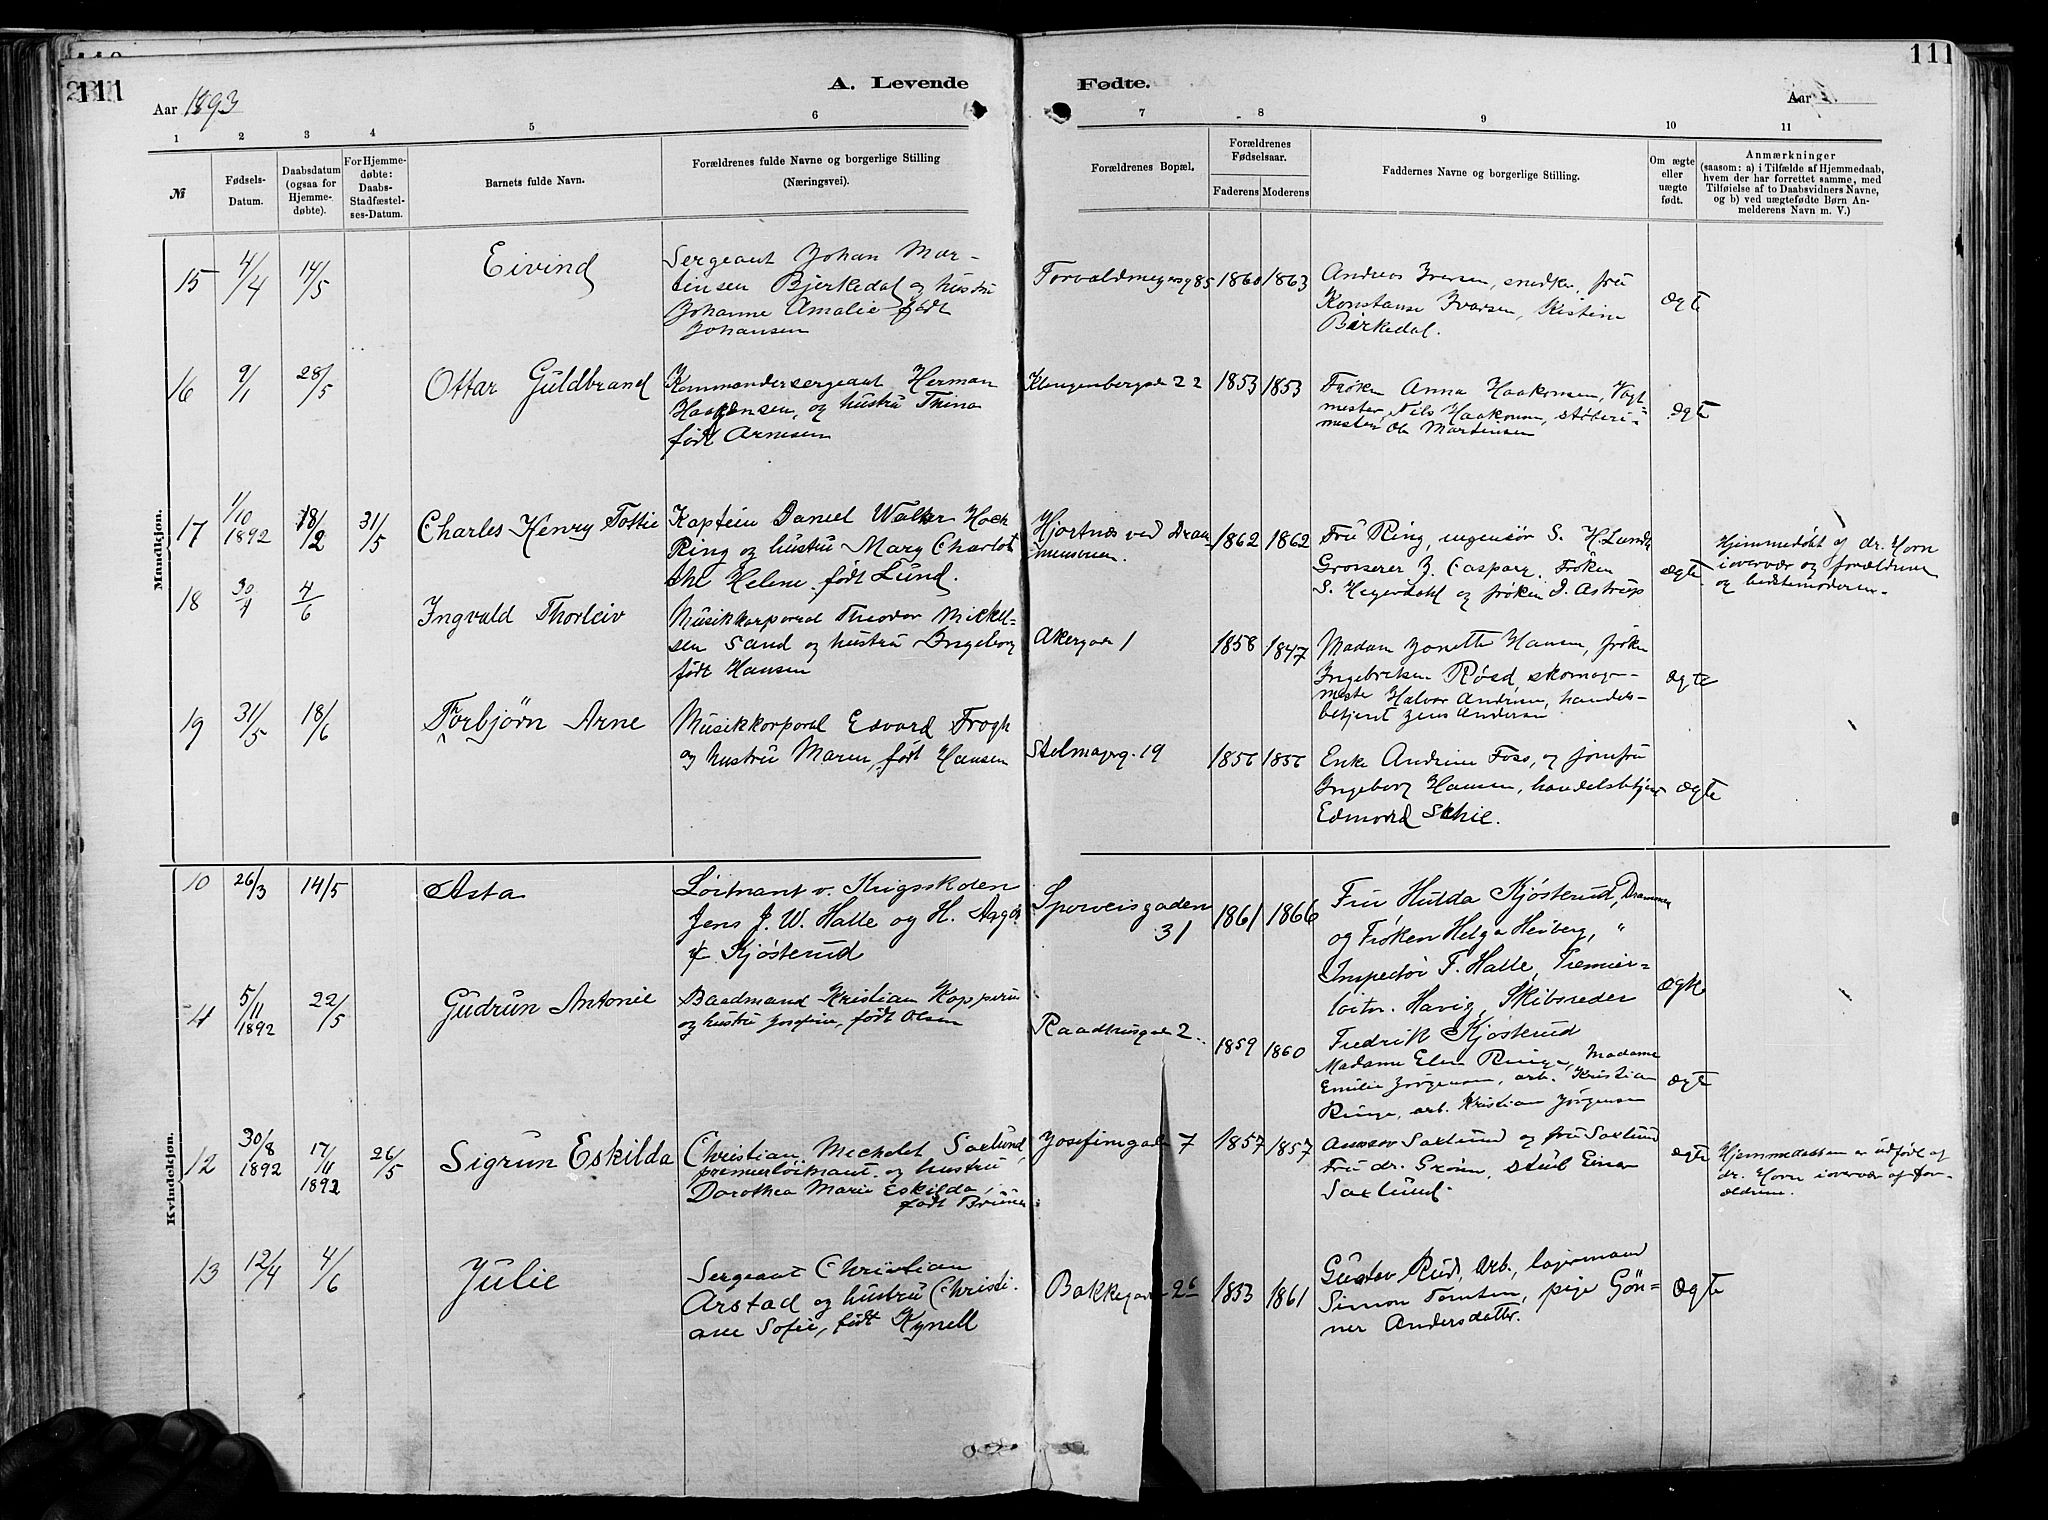 111
111
Aar 1893
A. Levende
Fødte.
Aar
1 2 3 4 5 6
7 8 9 10 11
№
Fødsels-
Datum.
Daabsdatum
(ogsaa for
Hjemme-
døbte).
For Hjemme-
døbte:
Daabs-
Stadfæstel-
ses-Datum.
Barnets fulde Navn.
Forældrenes fulde Navne og borgerlige Stilling
(Næringsvei).
Forældrenes Bopæl.
Forældrenes
Fødselsaar.
Faderens Moderens
Faddernes Navne og borgerlige Stilling.
Om ægte
eller
uægte
født.
Anmærkninger
(saasom: a) i Tilfælde af Hjemmedaab,
hvem der har forrettet samme, med
Tilføielse af to Daabsvidners Navne,
og b) ved uægtefødte Børn An-
melderens Navn m. V.)
Mandkjøn.
15 4/4 14/5 Eivind
Sergeant Johan Mar-
tinsen Bjerkedal og hustru
Johanne Amalie født
Johansen
85 1860 1863
Andreas Iversen, snedker, fru
Konstanse Ivarsen, Kistine
Birkedal.
ægte
16 9/1 28/5 Ottar Guldbrand
Kommandersergeant Herman
Haakonsen, og hustru Thina
født Arnesen
Klingenberggaden 22 1853 1853
Frøken Anna Haakonsen, Vogt-
mester Nils Haakonsen, støberi-
mester Ole Martinsen
ægte
17 1/10 1892 18/2 31/5 Charles Henry Tottie
Kaptein Daniel Walker Hoch
Ring og hustru Mary Charlot
the Helene født Lund.
Hjortnæs ved Dram-
mensveien.
1862 1862
Fru Ring, ingeniør S. H. Lund
Grosserer J. Caspary. Frøken
S. Heyerdahl og frøken I. Astrup
ægte
Hjemmedøbt af dr. Horn
i overvær og forældrene
og bedstemoderen.
18 30/4 4/6 Ingvald Thorleiv
Musikkorporal Theodor Mikkel-
sen Sand og hustru Ingeborg
født Hansen
Akergade 1 1858 1847
Madam Jonette Hansen, frøken
Ingebretsen Røsd skomager-
mester Halvor Andersen, handels-
betjent Jens Andersen
ægte
19 31/5 18/6 Torbjørn Arne
Musikkorporal Edvard Frogh
og hustru Maren, født Hansen
Stelmagerg. 19 1856 1856
Enke Andrine Foss, og jomfru
Ingeborg Hansen, handelsbetjent
Edmard Schie.
ægte
Kvindekjøn.
10 26/3 14/5 Asta
Løitnant v. Krigsskolen
Jens J. W. Halle og H. Aagot
f. Kjøsterud
Sporveisgaden
31
1861 1866
Fru Hulda Kjøsterud, Drammen
og Frøken Helga Heiberg, "
Inspektør F. Halle, Premier-
løitn. Havig, Skibsreder
Fredrik Kjøsterud
ægte
4 5/11 1892 22/5 Gudrun Antonie
Baadmand Kristian Kopperu
og hustru Josefine, født Olsen
Raadhusgade 2. 1859 1860
Madame Elen Ringe, Madame
Emilie Jørgensen, arb. Kristian
Ringe, arb. Kristian Jørgensen
ægte
12 30/8 1892 17/11 1892 26/5 Sigrun Eskilda
Christian Mechelet Saxlund,
premierløitnant og hustru
Dorothea Marie Eskilda,
født Bruun
Josefinegade 7 1857 1857
Saxlund og fru Saxlund
Fru dr. Grønn, stud Einar
Saxlund.
ægte
Hjemmedaaben er udført af
dr. Horn i overvær af for-
ældrene.
13 12/4 4/6 Julie
Sergeant Christian
Arstad og hustru Christi-
ane Sofie, født Kynell
Bakkegaden 26 1853 1861
Gustav Rud, Arb., lagermand
Simon Tomten, pige Gön-
ner Andersdatter.
ægte